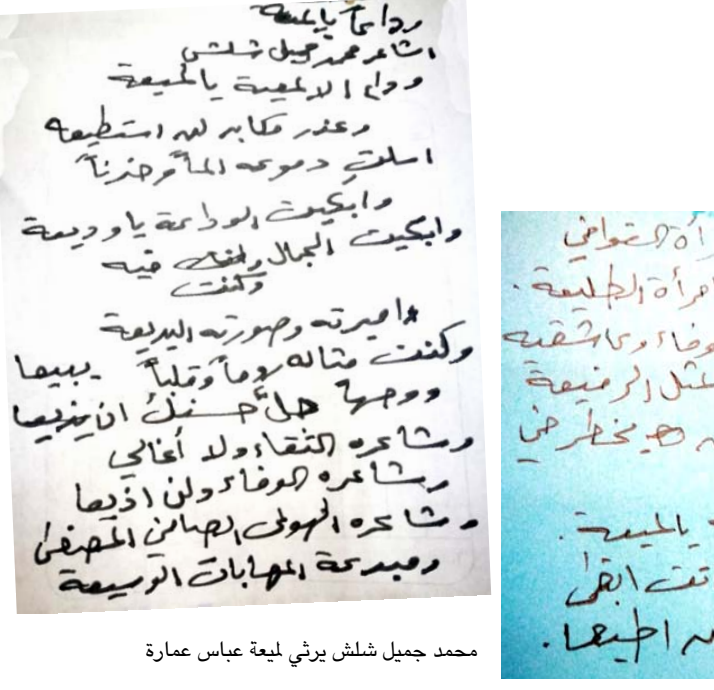 وداعاً يالميعة
الشاعر محمد جميل شلش
وداع الالمعية يالميعة
وعذر مكابر لن استطيعه
اسلتِ دموعه الماً وحزناً
وابكيت الوداعة يا وديعة
وابكيت الجمال وكنت فيه
وكنت
اميرته وصورته البديعة
وكنت مثاله روحاً وقلباً
ووجهاً جلّ حسنك ان يذيعا
وشاعره النقاء ولا أغالي
وشاعره الوفاء ولن اذيعا
وشاعره الهوى الصافي المصفى
ومبدعة المهابات الوسيعة
محمد جميل شلش يرثي لميعة عباس عمارة
رأة القوافي
امرأة الطليعة .
وفاء وعاشقيه
مثل الرفيعة
يخطر في
يالميعة .
ابقى
اطيعا .